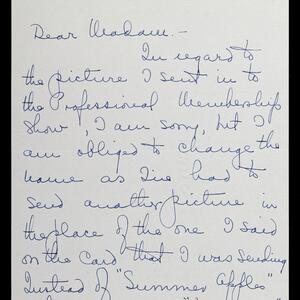 Dear Madam. –
In regard to
the picture I sent in to
the Professional Membership
Show, I am sorry, but I
am obliged to change the
name as I've had to
send another picture in
the place of the one I said
on the card that I was sending
Instead of "Summer Apples"